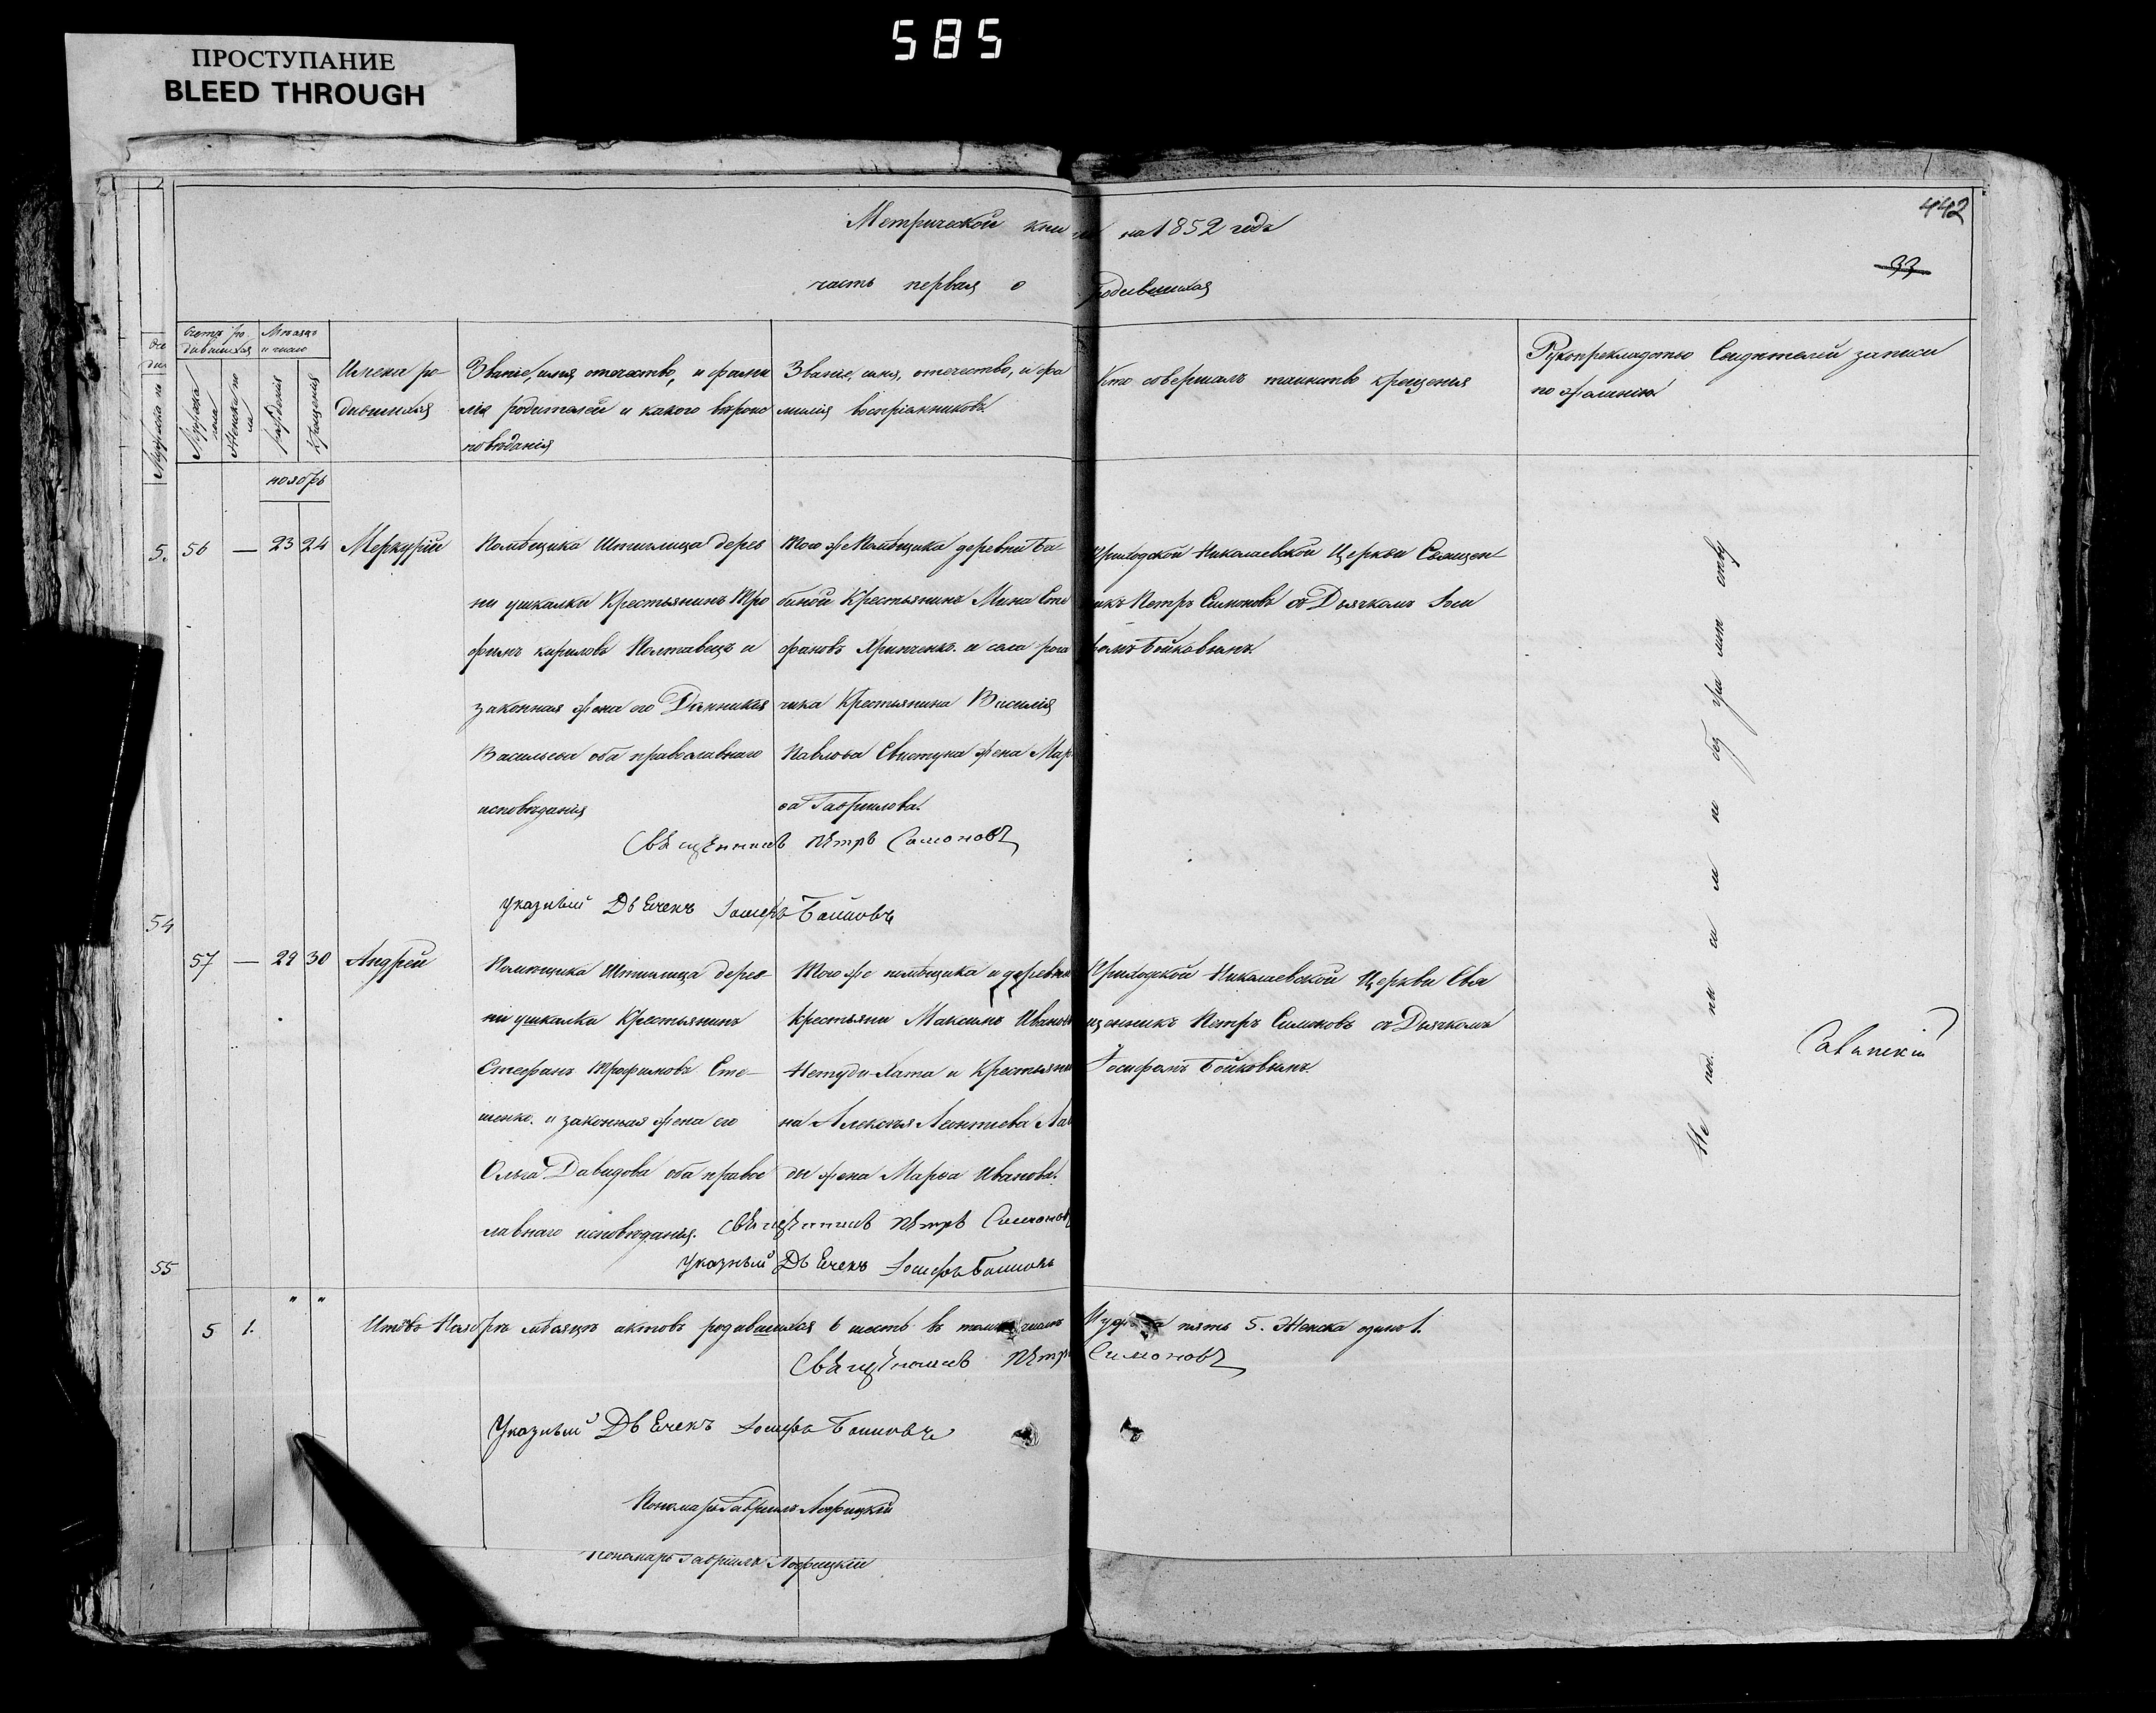 585
ПРОСТУПАНИЕ
BLEED THROUGH
442
33
Метрической книги на 1852 года
часть первая о родившихся
Счетъ родившихся
Мужска пола
Женска пола
Мѣсяцъ и число
рождения
крещения
Имена ро
дившихся
Званіе, имя, отечество, и фами
лія родителей и какого вѣроис
повѣданія
Званіе, имя, отечество, и фа
милія воспріемниковъ
Кто совершалъ таинство крещенія
Рукоприкладство свидѣтелей записи
по желанію
ноябрь
56 — 23 24 Меркурій
Помѣщика Штиглица дерев
ни ушкалки Крестьянинъ Тро
фимъ кириловъ Полтавецъ и
законная жена его Домникія
Васильева оба православнаго
исповѣданія
Того же Помѣщика деревни Ба-
биной Крестьянинъ Мина Сте
фановъ Хрипченко. и села рога
чика Крестьянина Василія
Павлова Свистуна жена Мар
ѳа Гаврилова.
Приходской Николаевской Церкви Священ
никъ Петръ Симоновъ съ Дьячкомъ Іоси
фомъ Бойковымъ.
Священникъ Пѣтръ Симоновъ
Указный Дьечекъ Іосифъ Бойковъ
54
57 — 29 30 Андрей
Помѣщика Штиглица дерев
ни ушкалки Крестьянинъ
Стефанъ Трофимовъ Сте-
шенко. и законная жена его
Ольга Давидова оба правос
лавнаго исповѣданія.
Того же помѣщика и деревни
крестьяни Максимъ Ивановъ
Нетуди-Хата и Крестьяни
на Алексѣя Леонтиева
жена Марѳа Иванова.
Приходской Николаевской Церкви Свя
щенникъ Петръ Симоновъ съ Дьячкомъ
Іосифомъ Бойковымъ.
Священникъ Пѣтръ Симоновъ
Указный Дьечекъ Іосифъ Бойковъ
55
Савинскій
5 1. Итого въ Ноябрѣ мѣсяцѣ актовъ родившихся 6 шесть въ томъ числѣ Мужска пять 5. Женска одинъ 1.
Священникъ Пѣтръ Симоновъ
Указный Дьечекъ Іосифъ Бойковъ
Пономарь Гавриилъ Лофицкій
Пономарь Гавріилъ Лофицкій